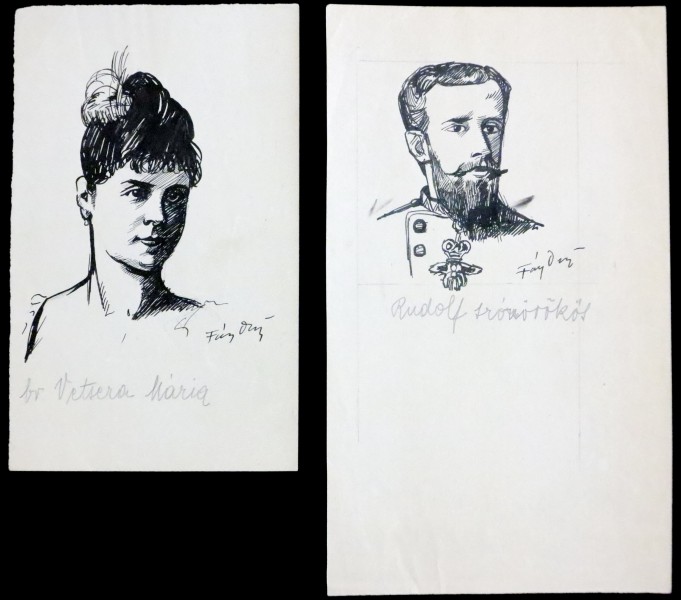 Fáy Dezső
br Vetsera Mária
Fáy Dezső
Rudolf trónörökös